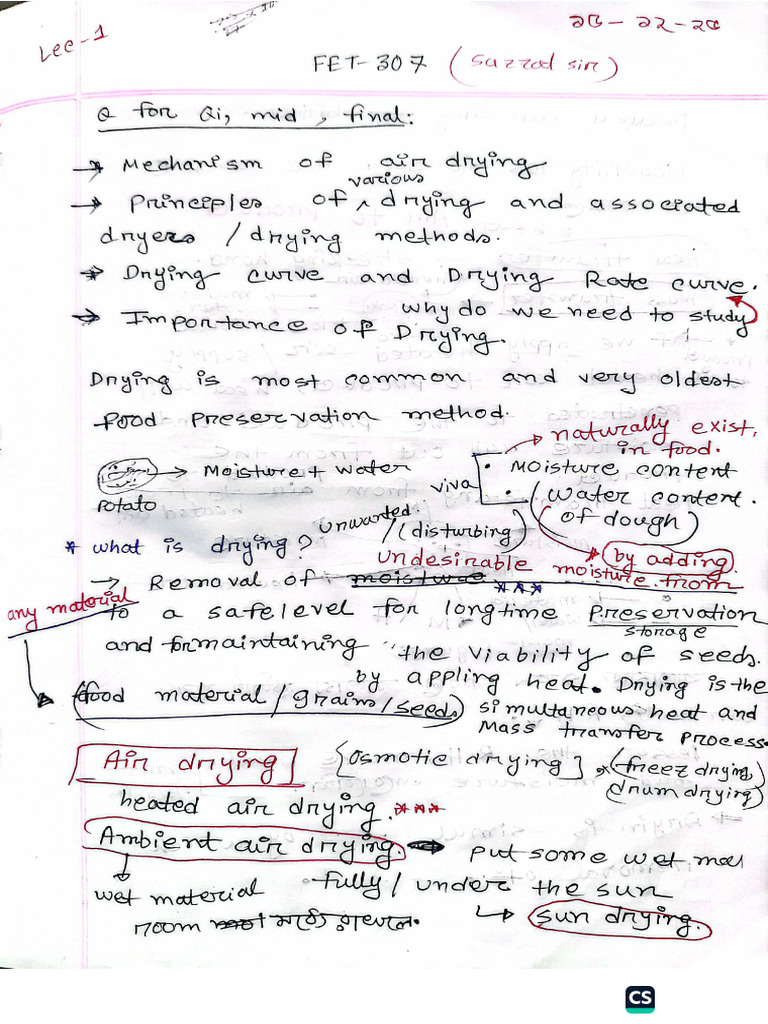 Lec-1
FET-307 (Sazzad sir)
Q for Qi, mid, final:
→ Mechanism of air drying
→ Principles of various drying and associated
dryers / drying methods.
→ Drying curve and Drying Rate curve.
why do we need to study
→ Importance of Drying.
Drying is most common and very oldest
food preservation method.
naturally exist,
in food.
Potato → Moisture + water
viva • Moisture content
• / water content.
of dough)
by adding
* what is drying? unwanted / (disturbing)
undesirable moisture from
→ Removal of moisture ***
any material to a safe level for longtime Preservation
storage
and for maintaining the viability of seeds.
by appling heat. Drying is the
(food material / grains / seeds) simultaneous heat and
Mass transfer process
Air drying [Osmotic drying] * (freez drying)
(drum drying)
heated air drying. ***
Ambient air drying. → put some wet
fully / under the sun
wet material
room
↳ sun drying.
CS